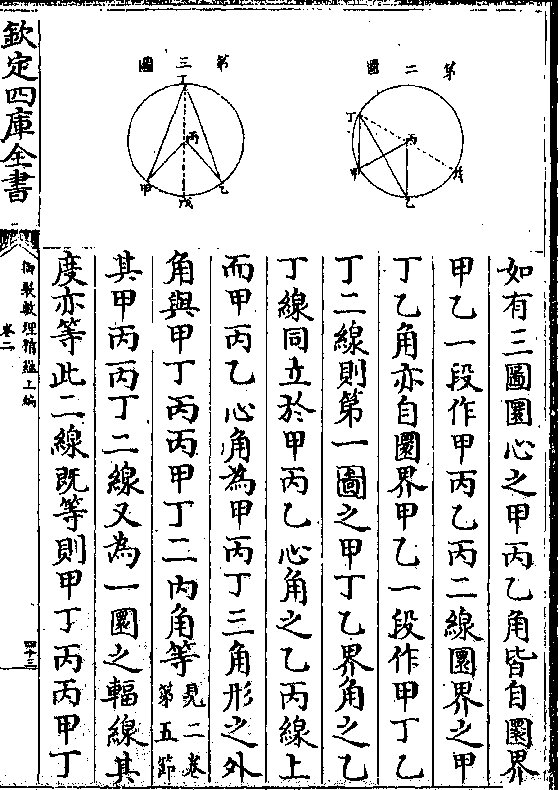 第二圖
丁
丙
甲
乙
戊
第三圖
丁
丙
甲
乙
戊
如有三圖圜心之甲丙乙角皆自圜界
甲乙一段作甲丙乙丙二線圜界之甲
丁乙角亦自圜界甲乙一段作甲丁乙
丁二線則第一圖之甲丁乙界角之乙
丁線同立於甲丙乙心角之乙丙線上
而甲丙乙心角為甲丙丁三角形之外
角與甲丁丙丙甲丁二內角等見二卷第五節
其甲丙丙丁二線又為一圜之輻線其
度亦等此二線既等則甲丁丙丙甲丁
欽定四庫全書
御製數理精蘊上編
卷二
四十三